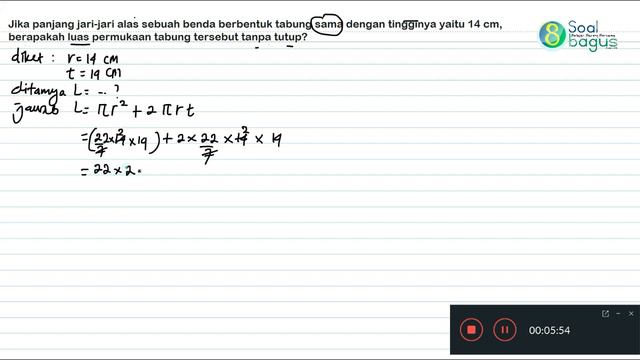 Jika panjang jari-jari alas sebuah benda berbentuk tabung sama dengan tingginya yaitu 14 cm,
berapakah luas permukaan tabung tersebut tanpa tutup?
8 Soal bagus
diket : r = 14 cm
t = 14 cm
ditanya L = ... ?
jawab L = πr² + 2πrt
= (22/7 × 14² × 14) + 2 × 22/7 × 14² × 14
= 22 × 2.
00:05:54